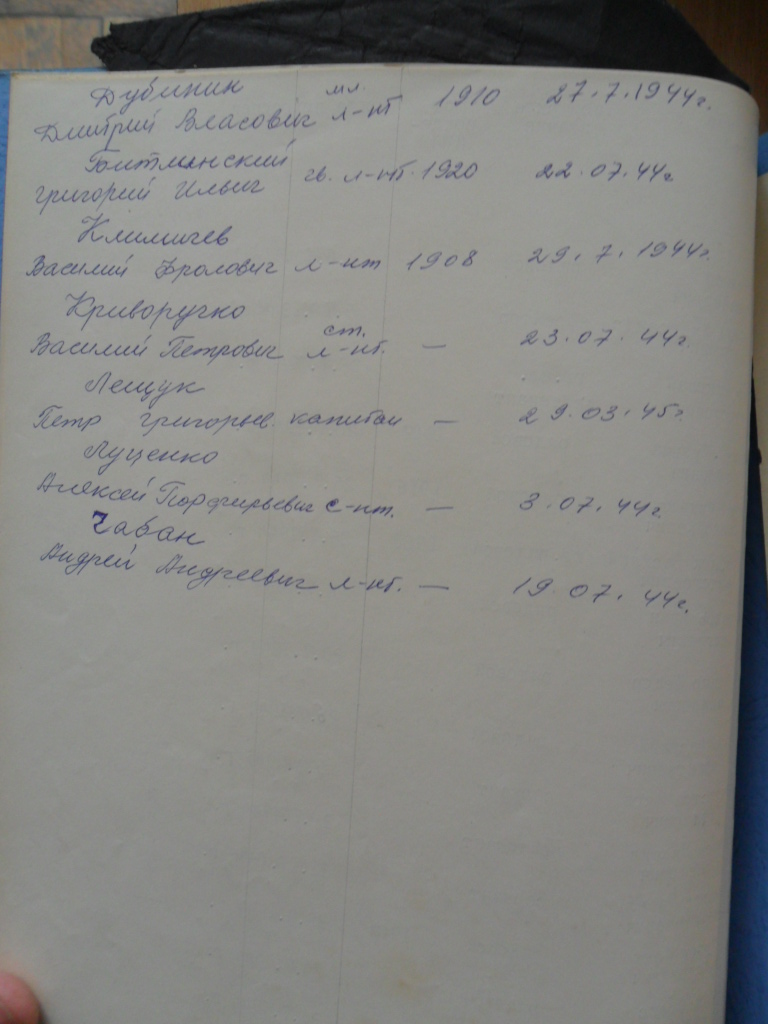 Дубинин мл.
Дмитрий Власович л-нт 1910 27.7.1944г.
Битминский
Григорий Ильич гв. л-нт. 1920 22.07.44г
Климичев
Василий Фролович л-нт 1908 29.7.1944г.
Криворучко ст.
Василий Петрович л-нт. — 23.07.44г.
Лещук
Петр Григорьев. капитан — 29.03.45г
Луценко
Алексей Порфирьевич с-нт. — 3.07.44г.
Чабан
Андрей Андреевич л-нт. — 19.07.44г.